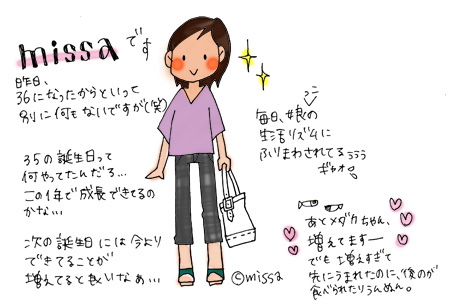 missaです
昨日、
36になったからといって
別に何もないですが(笑)
35の誕生日って
何やってたんだろ…
この1年で成長できてるの
かな…
次の誕生日には今より
できてることが
増えてると良いなぁ…
©missa
毎日、娘の
生活リズムに
ふりまわされてるぅぅぅ
ギャオ。
あとメダカちゃん、
増えてますー
でも増えすぎて
先にうまれたのに、後のが
食べられたりうんぬん。